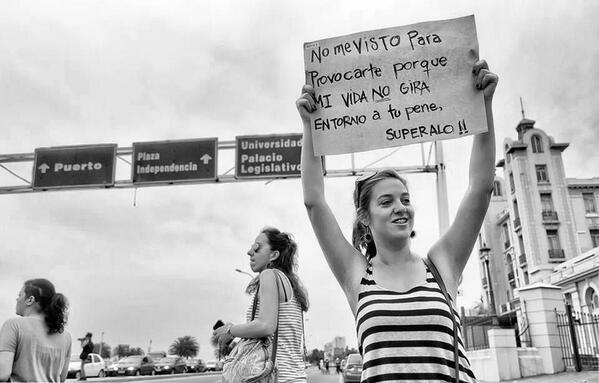 No me VISTO Para
Provocarte porque
MI VIDA NO GIRA
ENTORNO a tu pene,
SUPERALO !!
Puerto
Plaza
Independencia
Universidad
Palacio
Legislativo